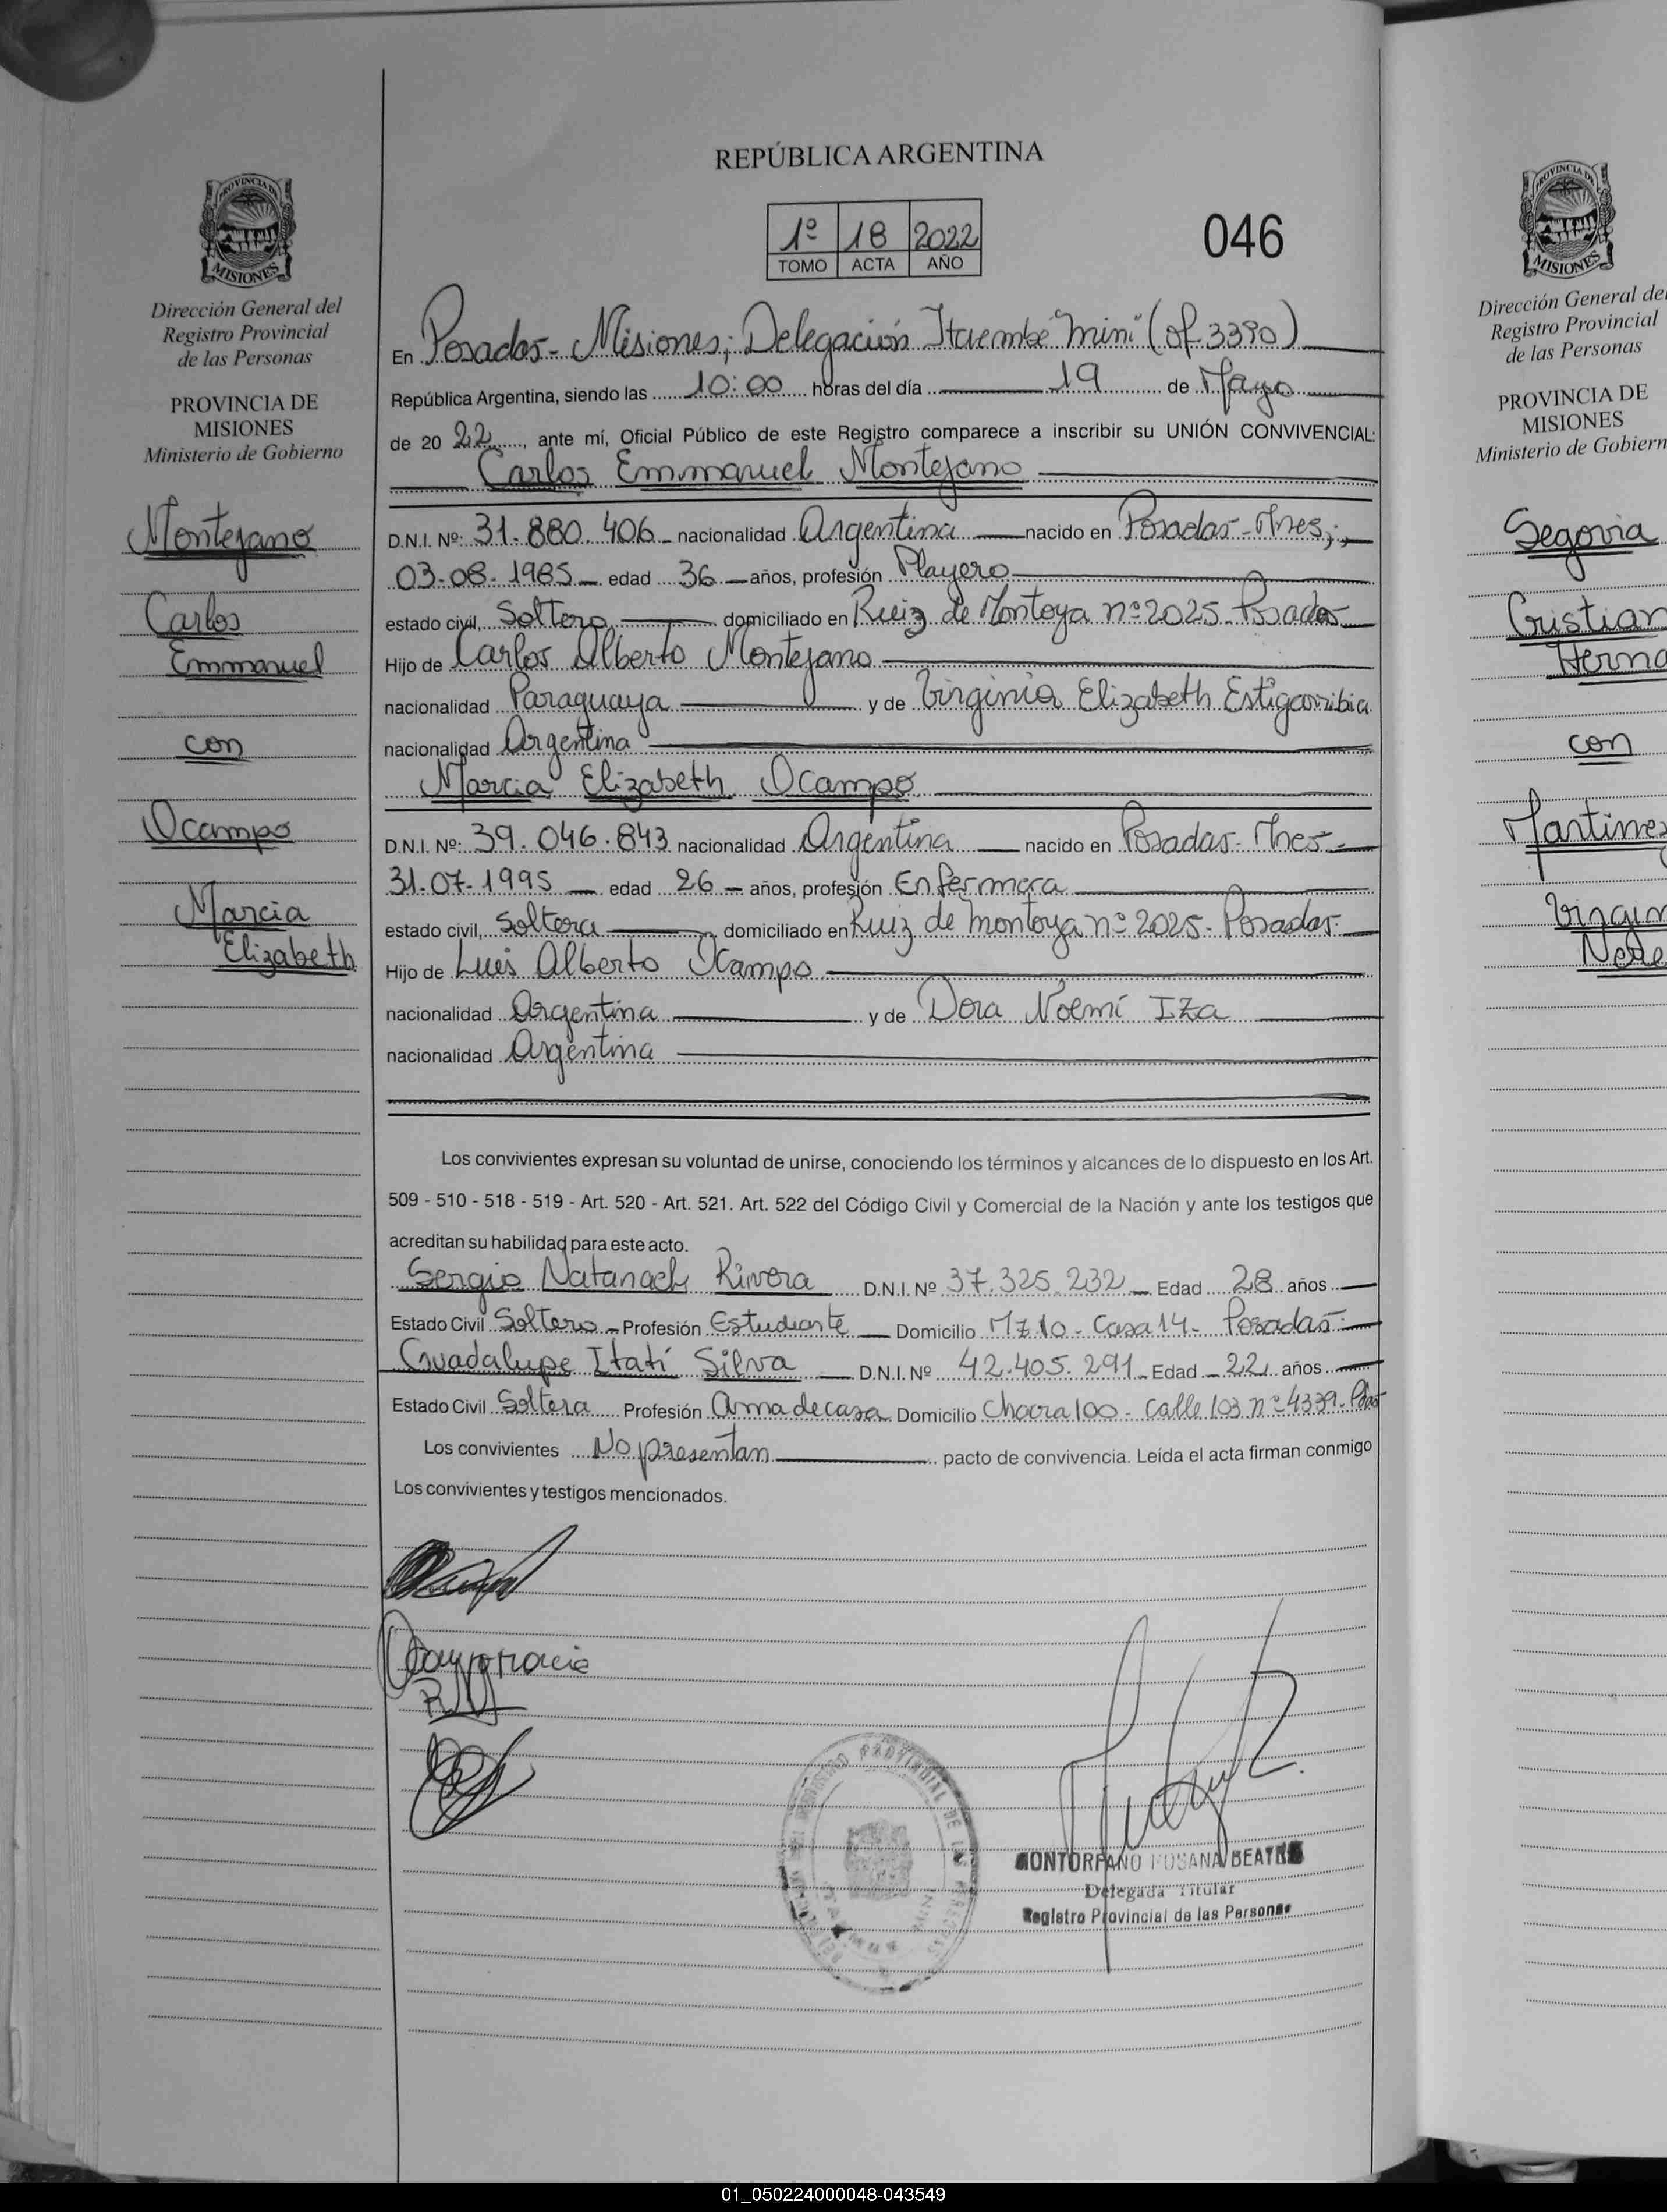 REPÚBLICA ARGENTINA
1º 18 2022
TOMO ACTA AÑO
046
PROVINCIA DE
MISIONES
Dirección General del
Registro Provincial
de las Personas
PROVINCIA DE
MISIONES
Ministerio de Gobierno
Montejano
Carlos
Emmanuel
con
Ocampo
Marcia
Elizabeth
En Posadas - Misiones; Delegación Itaembé "Mini" (of. 3390)
República Argentina, siendo las 10:00 horas del día 19 de Mayo
de 20 22, ante mí, Oficial Público de este Registro comparece a inscribir su UNIÓN CONVIVENCIAL:
Carlos Emmanuel Montejano
D.N.I. Nº: 31.880.406 nacionalidad Argentina nacido en Posadas - Mnes;
03-08-1985 edad 36 años, profesión Playero
estado civil, Soltero domiciliado en Ruiz de Montoya nº 2025 - Posadas
Hijo de Carlos Alberto Montejano
nacionalidad Paraguaya y de Virginia Elizabeth Estigarribia
nacionalidad Argentina
Marcia Elizabeth Ocampo
D.N.I. Nº: 39.046.843 nacionalidad Argentina nacido en Posadas - Mnes
31-07-1995 edad 26 años, profesión Enfermera
estado civil, Soltera domiciliado en Ruiz de Montoya nº 2025 - Posadas
Hijo de Luis Alberto Ocampo
nacionalidad Argentina y de Dora Noemí Iza
nacionalidad Argentina
Los convivientes expresan su voluntad de unirse, conociendo los términos y alcances de lo dispuesto en los Art.
509 - 510 - 518 - 519 - Art. 520 - Art. 521. Art. 522 del Código Civil y Comercial de la Nación y ante los testigos que
acreditan su habilidad para este acto.
Sergio Natanael Rivera D.N.I. Nº 37.325.232 Edad 28 años
Estado Civil Soltero Profesión Estudiante Domicilio Mz 10 - Casa 14 - Posadas
Guadalupe Itatí Silva D.N.I. Nº 42.405.291 Edad 22 años
Estado Civil Soltera Profesión Ama de casa Domicilio Chacra 100 - Calle 103 nº 4339 - Pdas
Los convivientes No presentan pacto de convivencia. Leída el acta firman conmigo
Los convivientes y testigos mencionados.
MONTORFANO ROSANA BEATRIZ
Delegada Titular
Registro Provincial de las Personas
PROVINCIA DE
MISIONES
Dirección General del
Registro Provincial
de las Personas
PROVINCIA DE
MISIONES
Ministerio de Gobiern
Segovia
Cristian
Herna
con
Martinez
01_050224000048-043549